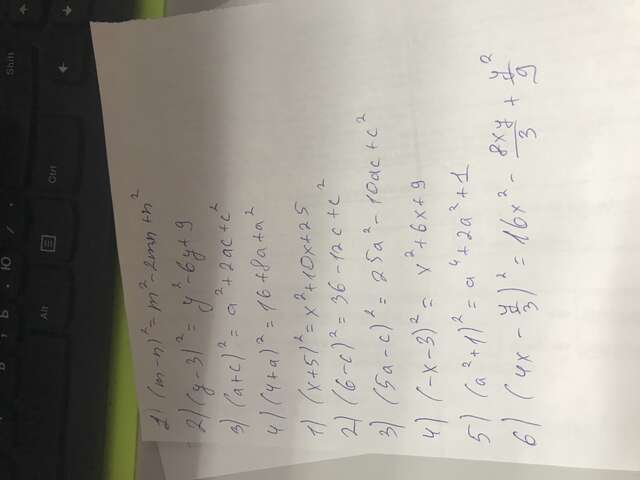 Shift
Alt
Ctrl
1) (m-n)² = m²-2mn+n²
2) (y-3)² = y²-6y+9
3) (a+c)² = a²+2ac+c²
4) (4+a)² = 16+8a+a²
1) (x+5)² = x²+10x+25
2) (6-c)² = 36-12c+c²
3) (5a-c)² = 25a²-10ac+c²
4) (-x-3)² = x²+6x+9
5) (a²+1)² = a⁴+2a²+1
6) (4x - y/3)² = 16x² - 8xy/3 + y²/9